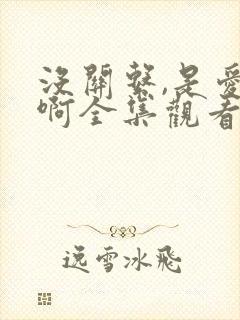 沒關繫,是愛
啊全集觀看
逸雪冰飛